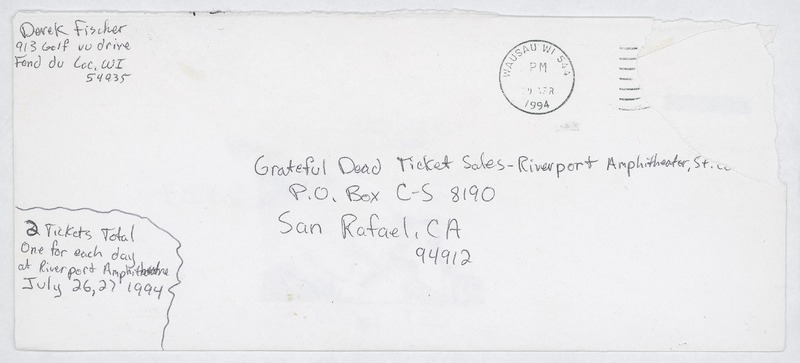 Derek Fischer
913 Golf vu drive
Fond du Lac, WI
54935
WAUSAU WI 544
PM
1994
Grateful Dead Ticket Sales-Riverport Amphitheater, St.
P.O. Box C-S 8190
San Rafael, CA
94912
2 Tickets Total
One for each day
at Riverport Amphitheatre
July 26,27 1994